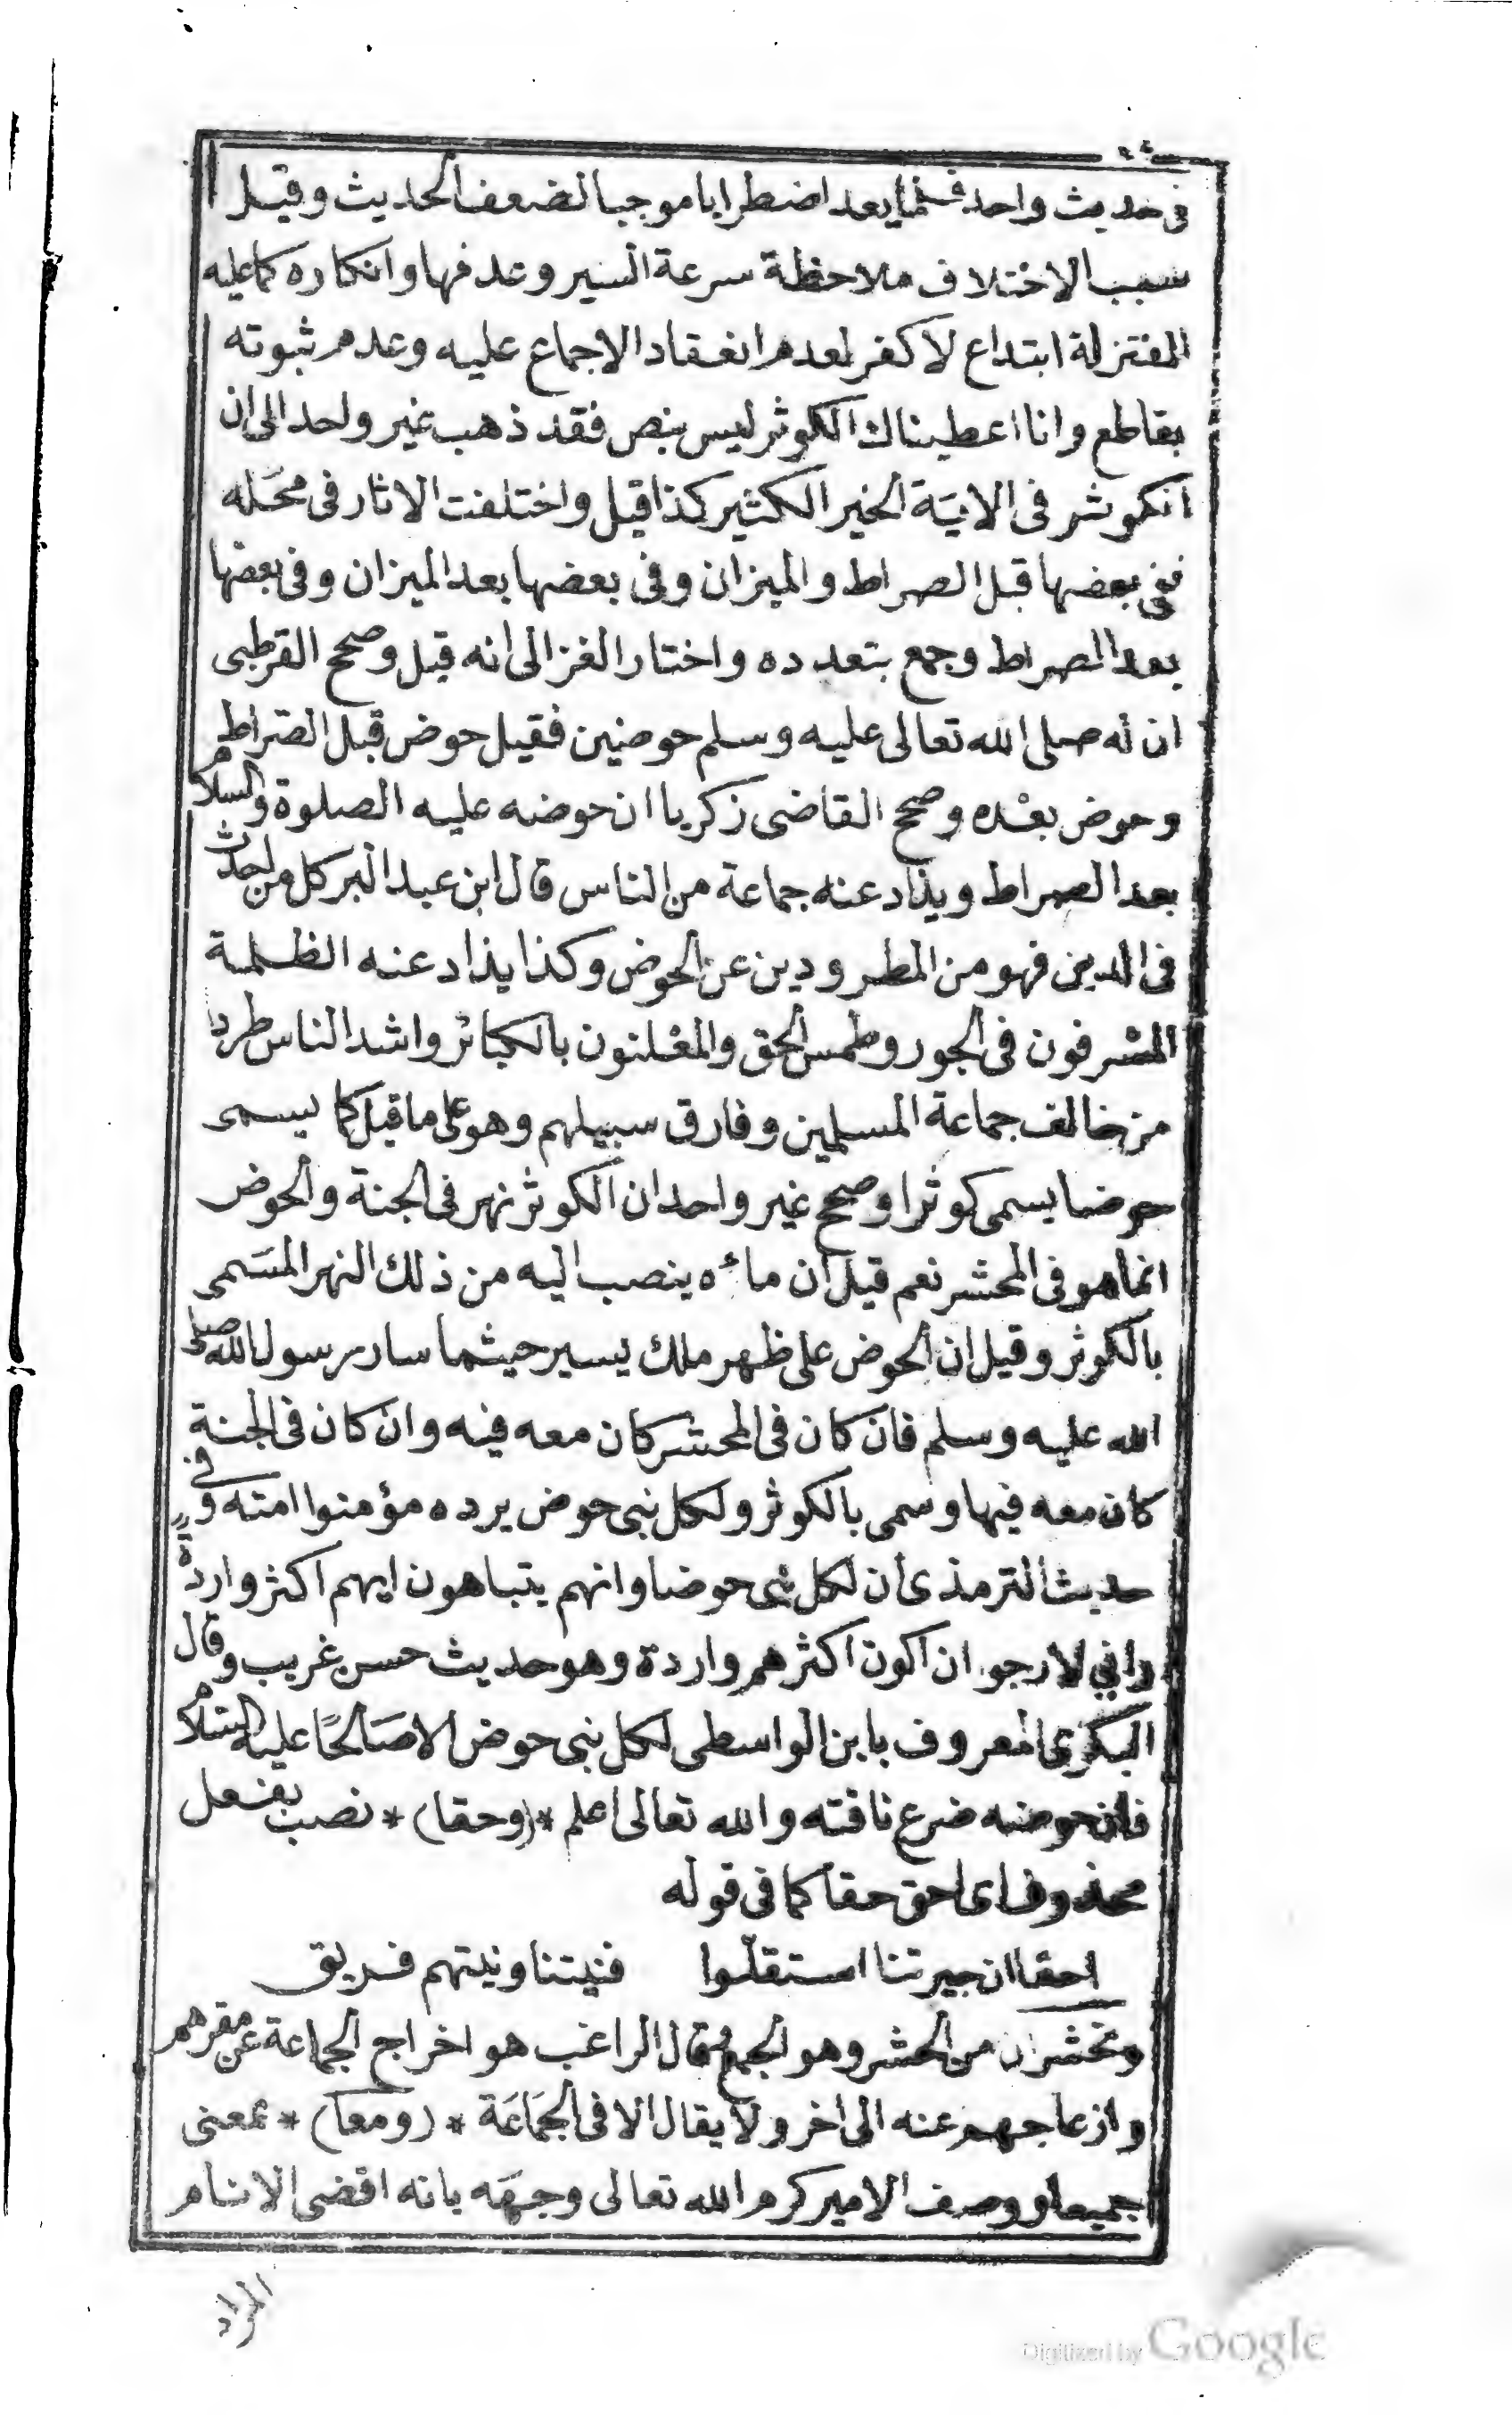 فى حديث واحد فلما يعد اضطرابا موجبا لضعف الحديث وقيل
سبب الاختلاف ملاحظة سرعة السير وعدمها وانكاره كما عليه
المعتزلة ابتداع لا كفر لعدم انعقاد الاجماع عليه وعدم ثبوته
بقاطع وانا اعطيناك الكوثر ليس بنص فقد ذهب غير واحد الى ان
الكوثر فى الاية الخير الكثير كذا قيل واختلفت الاثار فى محله
ففى بعضها قبل الصراط والميزان وفى بعضها بعد الميزان وفى بعضها
بعد الصراط وجمع بتعدده واختار الغزالى انه قبل وصحح القرطبى
ان له صلى الله تعالى عليه وسلم حوضين فقيل حوض قبل الصراط
وحوض بعده وصحح القاضى زكريا ان حوضه عليه الصلوة والسلام
بعد الصراط ويذاد عنه جماعة من الناس قال ابن عبد البر كل من احدث
فى الدين فهو من المطرودين عن الحوض وكذا يذاد عنه الظلمة
المسرفون فى الجور وطمس الحق والمعلنون بالكبائر واشد الناس طردا
من خالف جماعة المسلمين وفارق سبيلهم وهو على ما قيل كما يسمى
حوضا يسمى كوثرا وصحح غير واحد ان الكوثر نهر فى الجنة والحوض
انما هو فى المحشر نعم قيل ان ماءه ينصب اليه من ذلك النهر المسمى
بالكوثر وقيل ان الحوض على ظهر ملك يسير حيثما سار رسول الله صلى
الله عليه وسلم فان كان فى المحشر كان معه فيه وان كان فى الجنة
كان معه فيها وسمى بالكوثر ولكل نبى حوض يرده مؤمنوا امته وفى
حديث الترمذى ان لكل نبى حوضا وانهم يتباهون ايهم اكثر واردة
وانى لارجو ان اكون اكثرهم واردة وهو حديث حسن غريب وقال
البكرى المعروف بابن الواسطى لكل نبى حوض الا صَالحًا عليه السلام
فان حوضه ضرع ناقته والله تعالى اعلم *(وحقا)* نصب بفعل
محذوف اى احق حقا كما فى قوله
احقا ان جيرتنا استقلّوا فنيتنا ونيتهم فريق
وتحشران من الحشر وهو الجمع وقال الراغب هو اخراج الجماعة عن مقرهم
وازعاجهم عنه الى اخر ولا يقال الا فى الجمَاعَة * (ومعا) * بمعنى
جميعا ووصف الامير كرم الله تعالى وجهَه بانه اقضى الانام
المراد
Digitized by Google